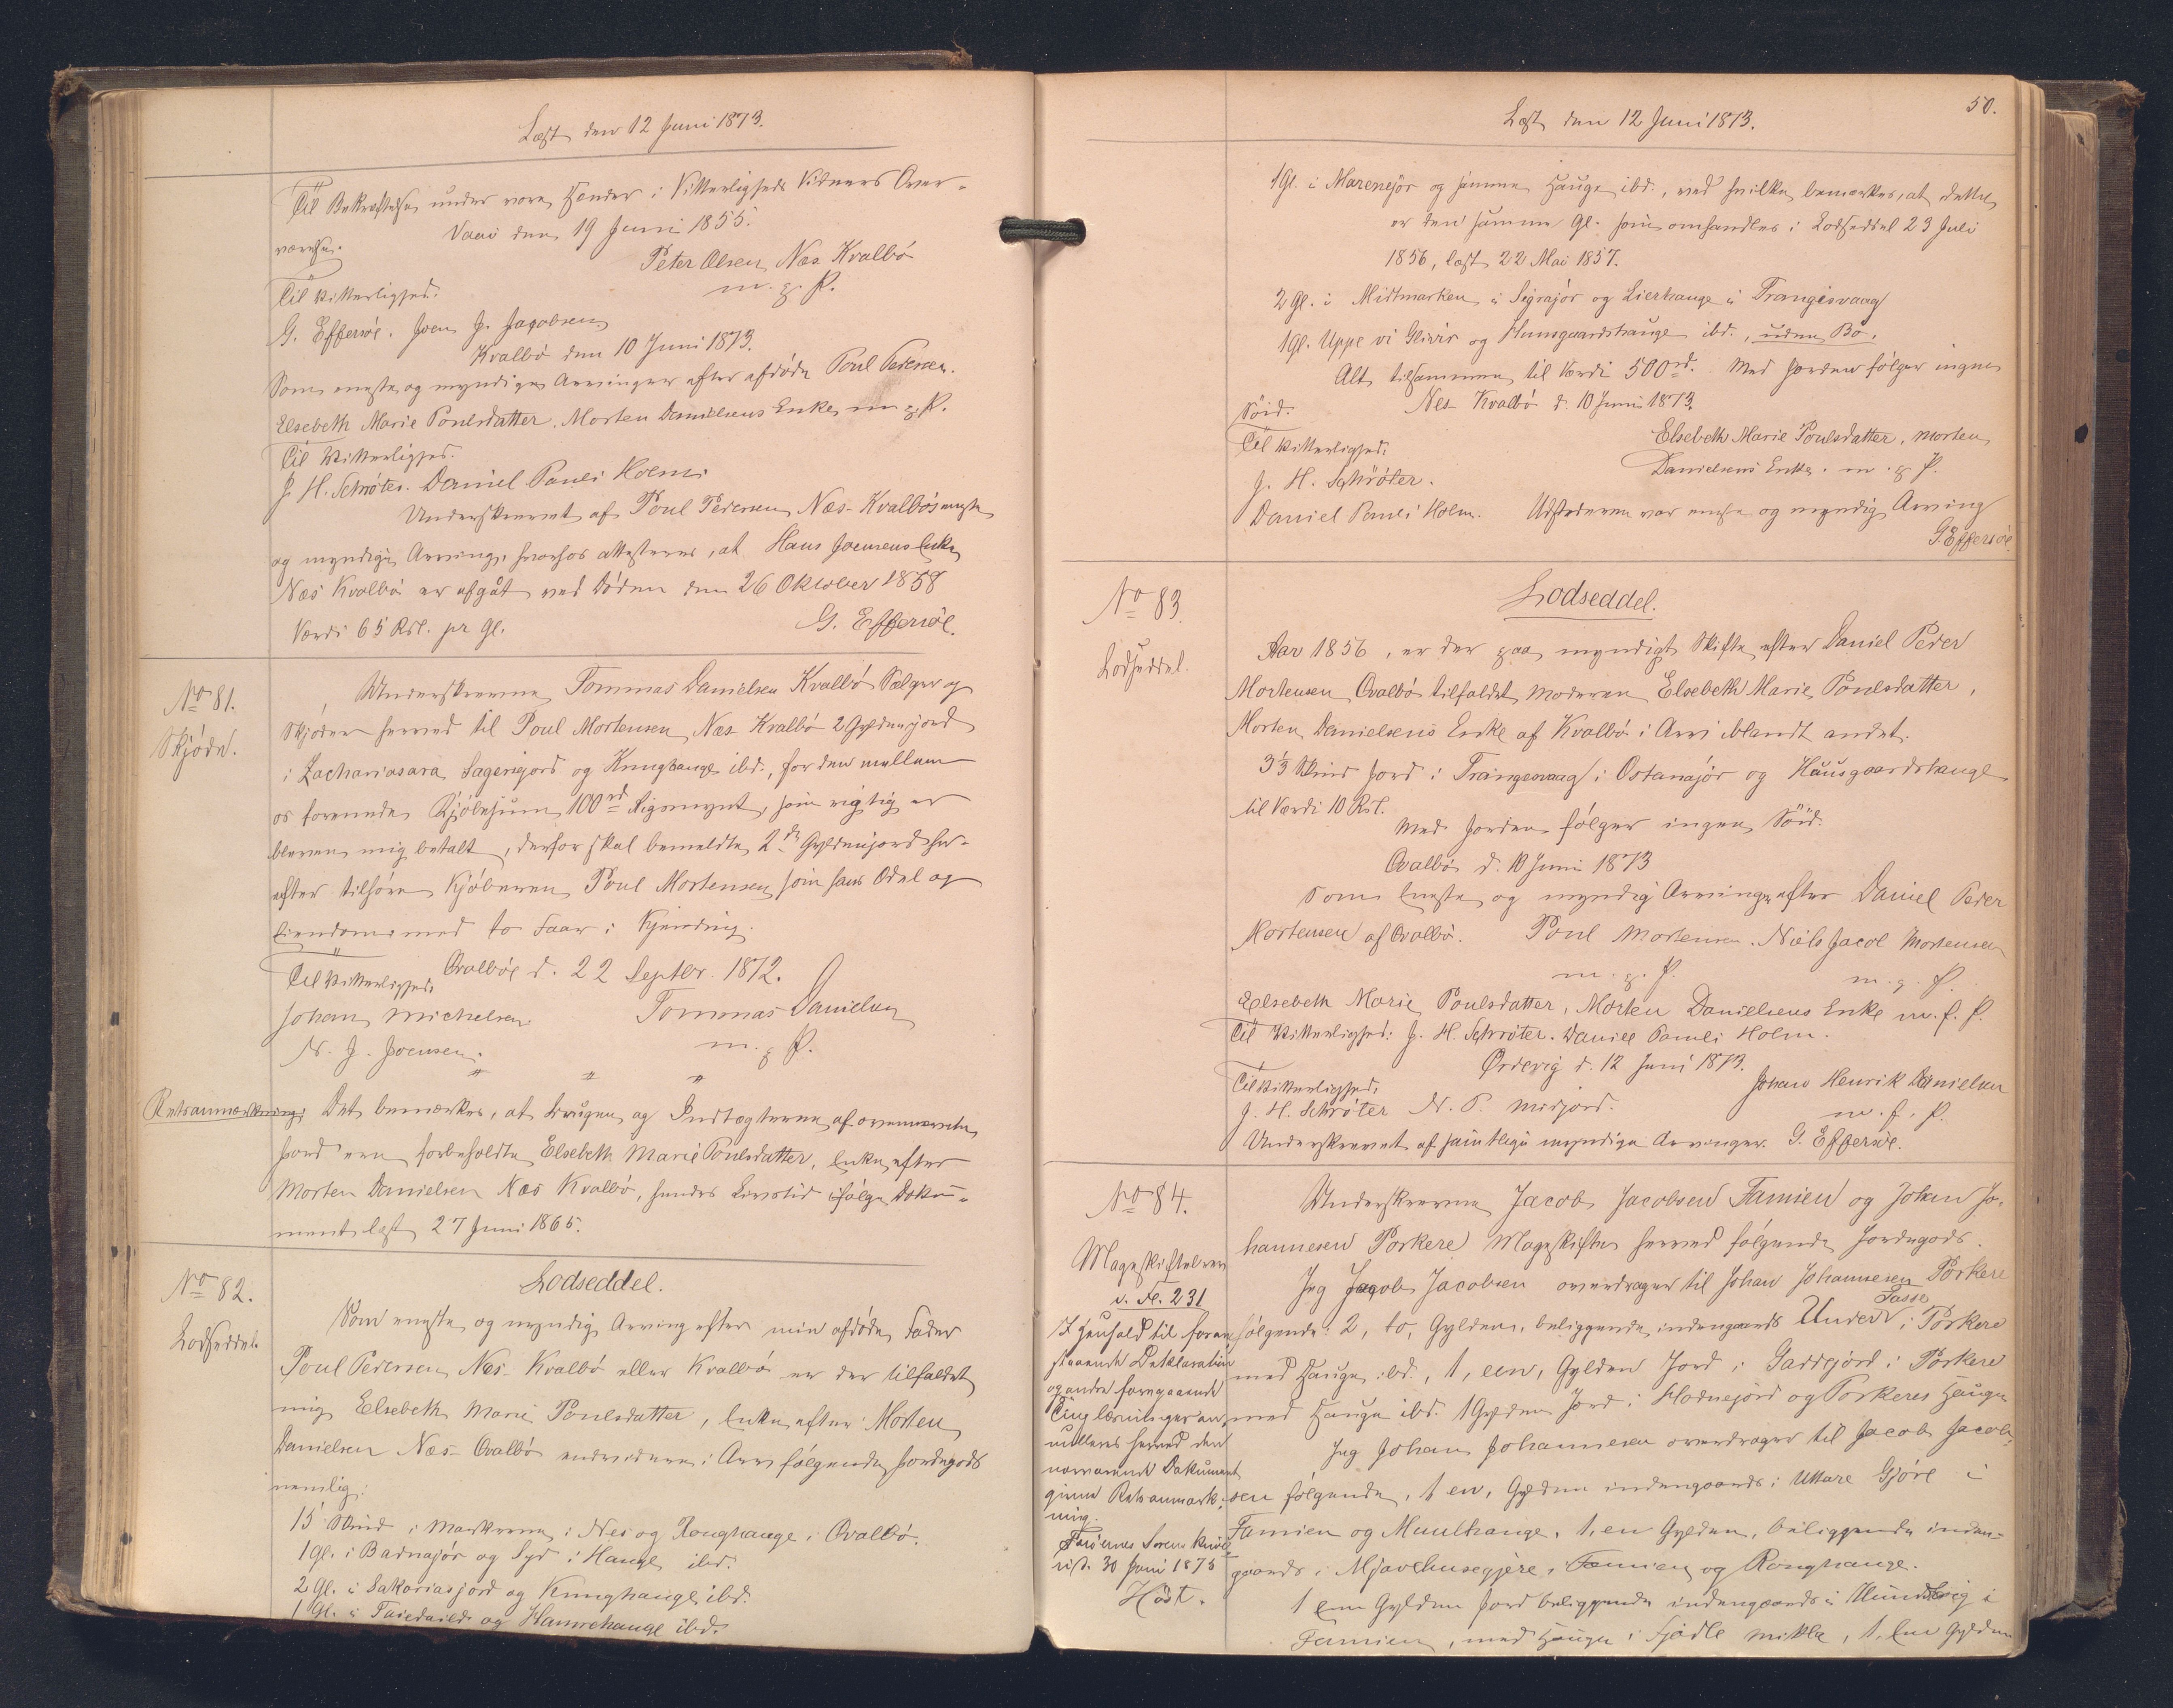 Læst den 12 Juni 1873.
Til Bekræftelse under vore Hænder i Vitterligheds Vidners Over-
værelse.
Vaag den 19 Juni 1855.
Peter Olsen Næs Kvalbö
m. g. P.
Til Vitterlighed.
G. Effersöe. Joen J. Jacobsen
Kvalbö den 10 Juni 1873.
Som eneste og myndige Arvinger efter afdöde Poul Pedersen.
Elsebeth Marie Poulsdatter. Morten Danielsens Enke m. g. P.
Til Vitterlighed.
J. H. Schröter. Daniel Pauli Holm.
Underskrevet af Poul Pedersen Næs-Kvalbös eneste
og myndige Arving, hvorhos attesteres, at Hans Joensens Enke
Næs Kvalbö er afgåt ved Döden den 26 Oktober 1858
Værdi 65 Rdl. pr Gl.
G. Effersöe.
No 81.
Skjöde.
Underskrevne Tommas Danielsen Kvalbö Sælger og
Skjöder herved til Poul Mortensen Næs Kvalbö 2 Gylden jord
i Zachariasara Sagerigord og Kunghauge ibd., for den mellem
os forenede Kjöbesum 100 rd Rigsmynt, som rigtig er
bleven mig betalt, derfor skal bemeldte 2de Gylden jord her-
efter tilhöre Kjöberen Poul Mortensen som hans Odel og
Eiendom med to Faar i Kjending.
Til Vitterlighed,
Qvalböe d. 22 Septbr. 1872.
Johan Michelsen.
Tommas Danielsen
N. J. Joensen.
m. g. P.
" " "
Retsanmærkning: Det bemærkes, at Brugen og Indtægterne af ovennævnte
Jord ere forbeholdte Elsebeth Marie Poulsdatter, Enke efter
Morten Danielsen Næs Kvalbö, hendes Livstid ifölge Doku-
ment læst 27 Juni 1865.
No 82.
Lodseddel.
Lodseddel.
Som eneste og myndig Arving efter min afdöde Fader
Poul Pedersen Næs-Kvalbö eller Kvalbö er der tilfaldet
mig Elsebeth Marie Poulsdatter, Enke efter Morten
Danielsen Næs-Qvalbö endvidere i Arv fölgende Jordegods
nemlig:
15 Skind i Markerne i Nes og Ronghauge i Qvalbö.
1 Gl. i Badnajör og Syd i Hauge ibd.
2 Gl. i Sakariasjord og Kunghauge ibd.
1 Gl. i og Hamrehauge ibd.
50.
Læst den 12 Juni 1873.
1 Gl. i Marenejör og samme Hauge ibd., ved hvilke bemærkes, at dette
er den samme Gl. som omhandles i Lodseddel 23 Juli
1856, læst 22 Mai 1857.
2 Gl. i Midtmarken i Sigrajör og Lierhauge i Trangisvaag
1 Gl. Uppe vi Glivir og Huusgaardshauge ibd., uden Bö.
Alt tilsammen til Værdi 500 rd. Med Jorden fölger ingen
Söid.
Nes Kvalbö d. 10 Juni 1873.
Til Vitterlighed:
Elsebeth Marie Poulsdatter, Morten
J. H. Schröter.
Danielsens Enke. m. g. P.
Daniel Pauli Holm. Udstederen var eneste og myndig Arving
G Effersöe.
No 83.
Lodseddel.
Lodseddel.
Aar 1856, er der paa myndigt Skifte efter Daniel Peder
Mortensen Qvalbö tilfaldet Moderen Elsebeth Marie Poulsdatter,
Morten Danielsens Enke af Kvalbö i Arv iblandt andet.
3 1/3 Skind Jord i Trangesvaag i Ostanajör og Huusgaardshauge
til Værdi 10 Rdl.
Med Jorden fölger ingen Söid.
Qvalbö d. 10 Juni 1873
Som Eneste og myndig Arvinger efter Daniel Peder
Mortensen af Qvalbö. Poul Mortensen. Niels Jacob Mortensen
m. g. P. m. g. P.
Elsebeth Marie Poulsdatter, Morten Danielsens Enke m. f. P.
Til Vitterlighed: J. H. Schröter. Daniel Pauli Holm.
Ördevig d. 12 Juni 1873.
Til Vitterlighed,
Johan Henrik Danielsen
J. H. Schröter N. P. Midjord.
m. f. P.
Underskrevet af samtlige myndige Arvinger. G. Effersöe.
No 84.
Mageskiftebrev
v. Fl. 231
I Henhold til foran
staaende Deklaration
og andre foregaaende
Tinglæsninger an-
nulleres herved den
nærværende Dokument
givne Retsanmærk-
ning.
Færöernes Sorenskriveri
d. 30 Juni 1875
Höst.
Underskrevne Jacob Jacobsen Famien og Johan Jo-
hannesen Porkere Mageskifter herved fölgende Jordegods.
Jeg Jacob Jacobsen overdrager til Johan Johannesen Porkere
fölgende: 2, to, Gylden, beliggende indengaards Under Tasse i Porkere
med Hauge ibd., 1, een, Gylden Jord i Gardejord i Porkere
med Hauge ibd. 1 Gylden Jord i Hodnejord og Porkeres Hauge
Jeg Johan Johannesen overdrager til Jacob Jacob-
sen fölgende, 1 en, Gylden indengaards i Uttare Gjöre i
Famien og Muulhauge, 1, en Gylden, beliggende inden-
gaards i Mjavehusegjere, i Famien og Ronghauge.
1 Een Gylden Jord beliggende indengaards i i
Famien, med Hauge i Fjödle mikla, 1, Een Gylden